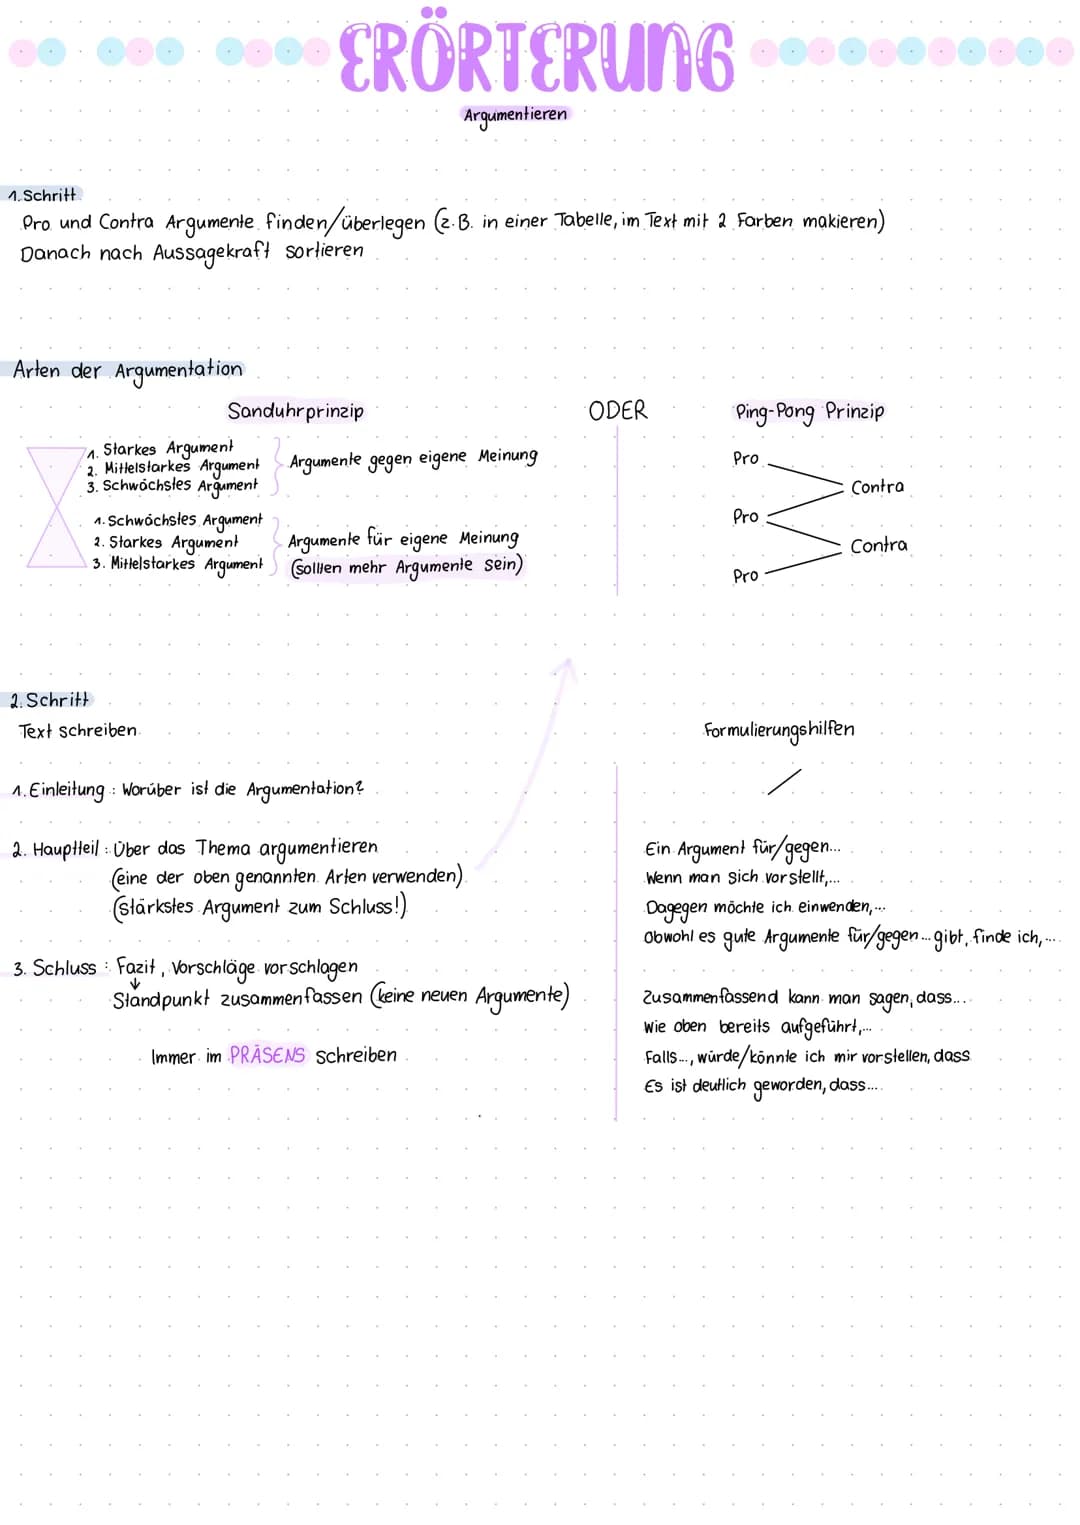 ERÖRTERUNG
Argumentieren
1. Schritt
Pro und Contra Argumente finden/überlegen (z.B. in einer Tabelle, im Text mit 2 Farben makieren)
Danach nach Aussagekraft sortieren
Arten der Argumentation
Sanduhrprinzip
1. Starkes Argument
2. Mittelstarkes Argument
3. Schwächstes Argument
Argumente gegen eigene Meinung
1. Schwächstes Argument
2. Starkes Argument
3. Mittelstarkes Argument
Argumente für eigene Meinung
(sollten mehr Argumente sein)
ODER
Ping-Pong Prinzip
Pro
Contra
Pro
Contra
Pro
2. Schritt
Text schreiben
1. Einleitung : Worüber ist die Argumentation?
2. Hauptteil : Über das Thema argumentieren
(eine der oben genannten Arten verwenden)
(stärkstes Argument zum Schluss!)
3. Schluss : Fazit, Vorschläge vorschlagen
Standpunkt zusammenfassen (keine neuen Argumente)
Immer im PRÄSENS schreiben
Formulierungshilfen
Ein Argument für/gegen...
Wenn man sich vorstellt,...
Dagegen möchte ich einwenden,...
Obwohl es gute Argumente für/gegen...gibt, finde ich,...
Zusammenfassend kann man sagen, dass...
Wie oben bereits aufgeführt,...
Falls..., würde/könnte ich mir vorstellen, dass
Es ist deutlich geworden, dass...